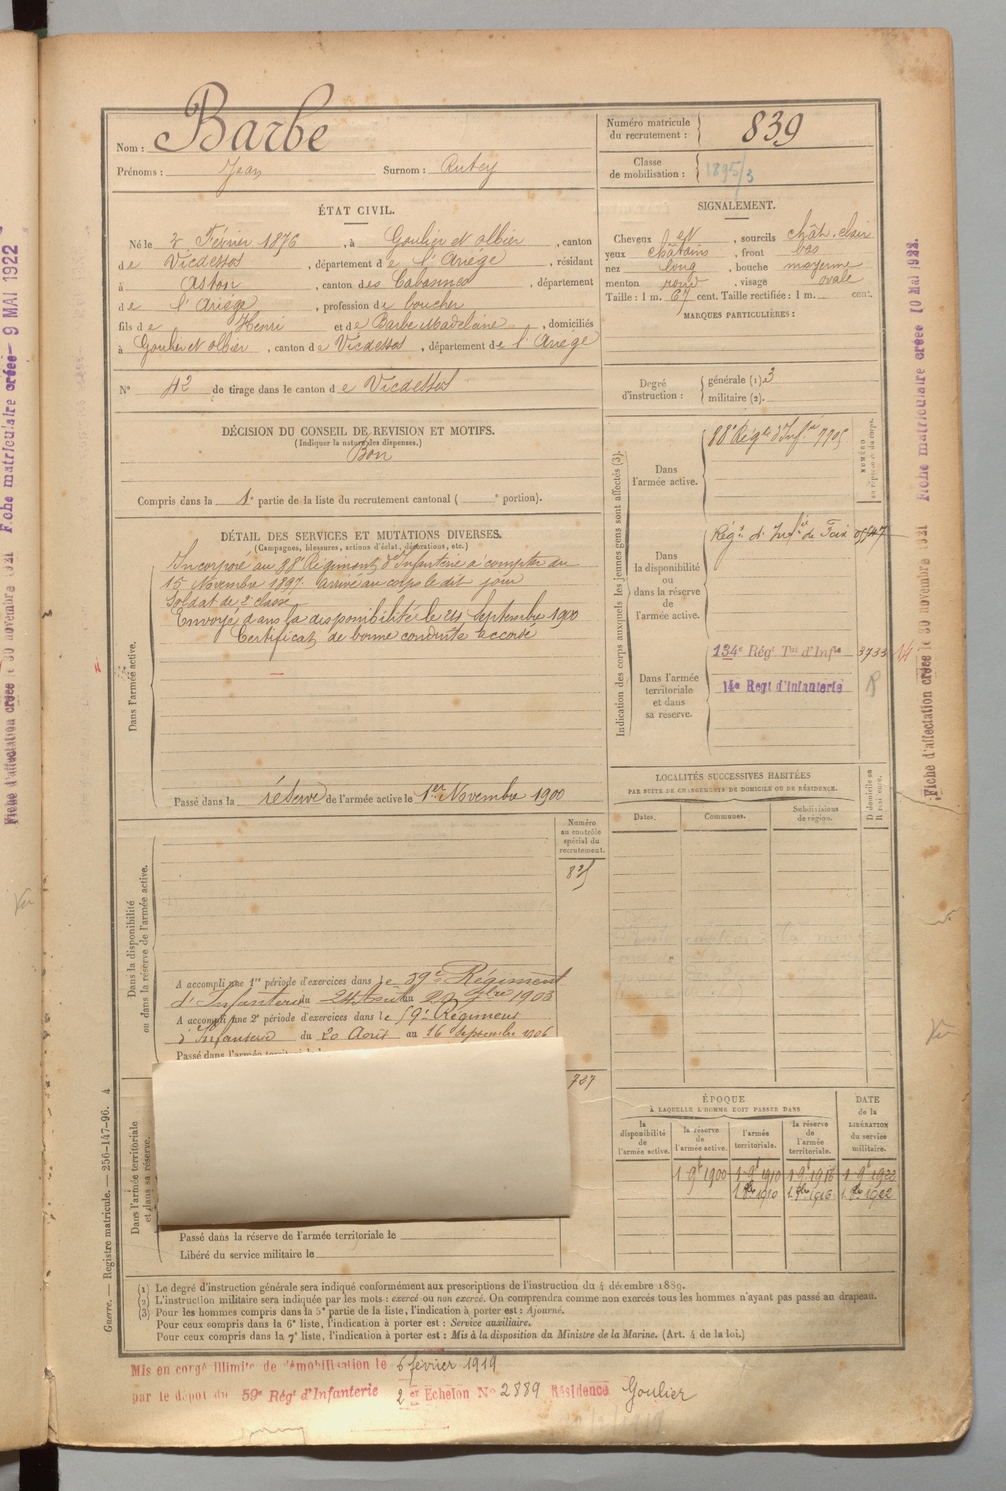 Nom : Barbe
Prénoms : Jean Surnom : Rutey
Numéro matricule
du recrutement : 839
Classe
de mobilisation : 1895/3
ÉTAT CIVIL.
Né le 2 Février 1876, à Goulier et Olbier, canton
de Vicdessos, département de l'Ariège, résidant
à Aston, canton des Cabannes, département
de l'Ariège, profession de boucher
fils de Henri et de Barbe Madelaine, domiciliés
à Goulier et olbier, canton de Vicdessos, département de l'Ariège
SIGNALEMENT.
Cheveux et, sourcils chât. clair
yeux châtains, front bas
nez long, bouche moyenne
menton rond, visage ovale
Taille : 1 m. 67 cent. Taille rectifiée : 1 m. cent.
MARQUES PARTICULIÈRES :
N° 42 de tirage dans le canton de Vicdessos
Degré
d'instruction :
générale (1) 3
militaire (2).
DÉCISION DU CONSEIL DE REVISION ET MOTIFS.
(Indiquer la nature des dispenses.)
Bon
Compris dans la 1e partie de la liste du recrutement cantonal ( e portion).
DÉTAIL DES SERVICES ET MUTATIONS DIVERSES.
(Campagnes, blessures, actions d'éclat, décorations, etc.)
Dans l'armée active.
Incorporé au 88e Régiment d'Infanterie à compter du
15 Novembre 1897 arrivé au corps le dit jour
Soldat de 2e classe
Envoyé dans la disponibilité le 24 Septembre 1900
Certificat de bonne conduite accordé
Passé dans la réserve de l'armée active le 1er Novembre 1900
Indication des corps auxquels les jeunes gens sont affectés (3).
NUMÉRO
au répertoire du corps.
Dans
l'armée active.
88e Régt d'Infie 7705
Dans
la disponibilité
ou
dans la réserve
de
l'armée active.
Régt d'Infie de Foix
Dans l'armée
territoriale
et dans
sa réserve.
134e Rég. Tal d'Infie 3733
14e Regt d'Infanterie
LOCALITÉS SUCCESSIVES HABITÉES
PAR SUITE DE CHANGEMENTS DE DOMICILE OU DE RÉSIDENCE.
D domicile ou
R résidence.
Dates.
Communes.
Subdivisions
de région.
Dans la disponibilité
ou dans la réserve de l'armée active.
Numéro
au contrôle
spécial du
recrutement.
825
A accompli une 1re période d'exercices dans le 59e Régiment
d'Infanterie du 24 Août au 20 7bre 1903
A accompli une 2e période d'exercices dans le 59e Régiment
d'Infanterie du 20 Août au 16 Septembre 1906
Passé dans l'armée territoriale le
787
Dans l'armée territoriale
et dans sa réserve.
Passé dans la réserve de l'armée territoriale le
Libéré du service militaire le
ÉPOQUE
À LAQUELLE L'HOMME DOIT PASSER DANS
DATE
de la
LIBÉRATION
du service
militaire.
la
disponibilité
de
l'armée active.
la réserve
de
l'armée active.
l'armée
territoriale.
la réserve
de
l'armée
territoriale.
1 9b 1900 1 9b 1910 1 9b 1916 1 9b 1922
1 8bre 1910 1 8bre 1916 1 8bre 1922
(1) Le degré d'instruction générale sera indiqué conformément aux prescriptions de l'instruction du 4 décembre 1889.
(2) L'instruction militaire sera indiquée par les mots : exercé ou non exercé. On comprendra comme non exercés tous les hommes n'ayant pas passé au drapeau.
(3) Pour les hommes compris dans la 5e partie de la liste, l'indication à porter est : Ajourné.
Pour ceux compris dans la 6e liste, l'indication à porter est : Service auxiliaire.
Pour ceux compris dans la 7e liste, l'indication à porter est : Mis à la disposition du Ministre de la Marine. (Art. 4 de la loi.)
Guerre. — Registre matricule. — 256-147-96. 4
Mis en congé illimité de démobilisation le 6 février 1919
par le dépôt du 59e Régt d'Infanterie 2er Echelon No 2889 Résidence Goulier
Fiche d'affectation créée le 30 novembre 1921 Fiche matriculaire créée 9 MAI 1922
Fiche d'affectation créée le 30 novembre 1921 Fiche matriculaire créée 10 MAI 1922.